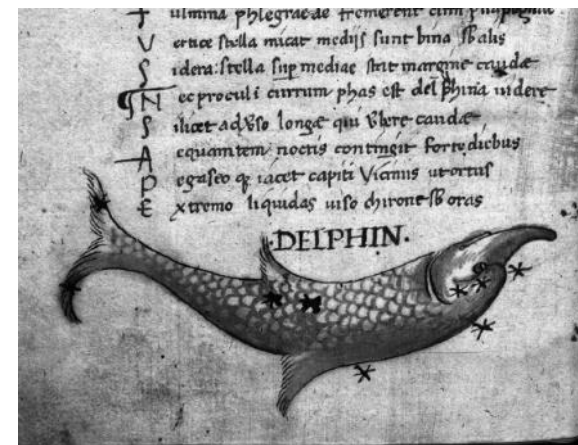 T ulmina phlegraeae fremerent cum
V ertice stella micat medijs sunt bina sb alis
S idera: stella sup mediae stat margine caudae
N ec procul i currum phas est delphina uidere
S ilicet aduso longae qui caudae
A equantem noctis contingit forte diebus
P egaseo q iacet capiti Vicinus ut ortus
E xtremo liquidas uiso chirone sb oras
·DELPHIN·